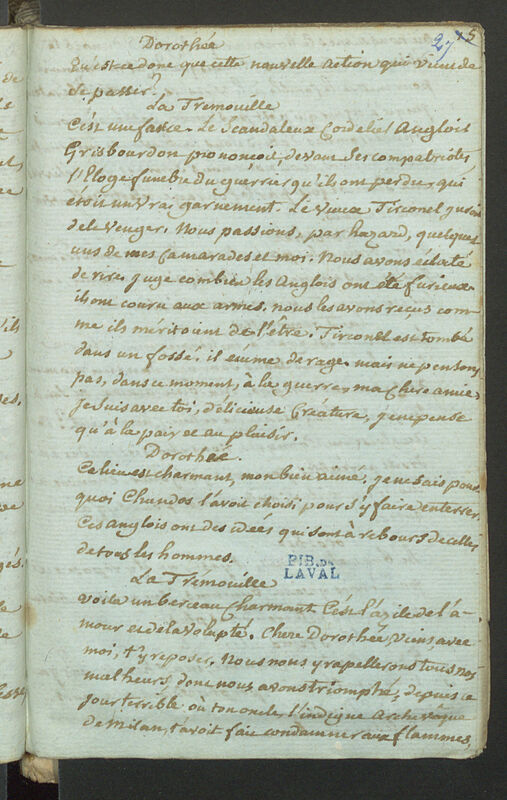 27 25
Dorothée
Qu'est ce donc que cette nouvelle action qui vient de
se passer?
La Trémouille
C'est une farce. Le Scandaleux Cordelier Anglois
Grisbourdon prononçoit, devant ses compatriotes
l'Eloge funebre du guerrier qu'ils ont perdu, qui
étoit un vrai garnement. Le vieux Tirconel juroit
de le venger. Nous passions, par hazard, quelques
uns de mes Camarades et moi. Nous avons éclaté
de rire. juge combien les Anglois ont été furieux.
ils ont couru aux armes. nous les avons reçus com-
me ils méritoient de l'être. Tirconel est tombé
dans un fossé. il écume de rage. mais ne pensons
pas, dans ce moment, à la guerre, ma Chere amie.
Je suis avec toi, délicieuse Créature, je ne pense
qu'à la paix et au plaisir.
Dorothée.
Ce lieu est charmant, mon bien aimé. je ne sais pour
quoi Chandos l'avoit choisi pour s'y faire enterrer.
Ces anglois ont des idées qui sont à rebours de celles
de tous les hommes.
BIB. DE
LAVAL
La Trémouille
voila un berceau Charmant. C'est l'azile de l'a-
mour et de la volupté. Chere Dorothée, viens, avec
moi, t'y reposer. Nous nous y rapellerons tous nos
malheurs, dont nous avons triomphé, depuis ce
jour terrible où ton oncle, l'indigne Archevêque
de Milan, t'avoit fait condamner aux flammes,